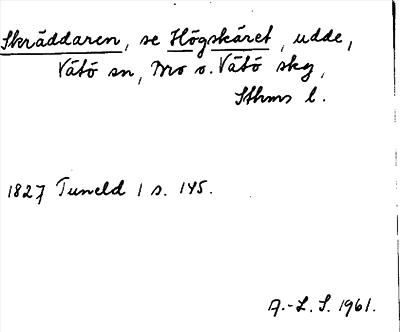 Skräddaren, se Högskäret, udde,
Vätö sn, Mo o. Vätö skg,
Sthms l.
1827 Tuneld 1 s. 145.
A.-L. S. 1961.